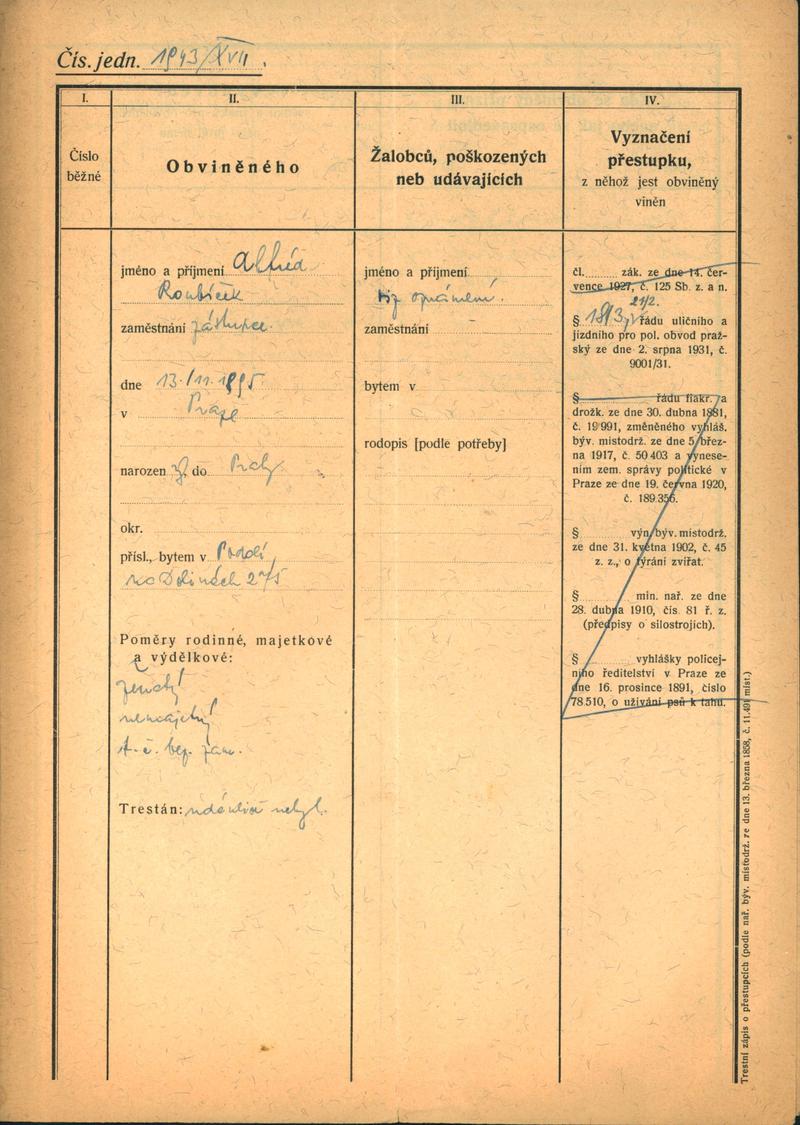 Čís. jedn. 1943/XVII.
I.
Číslo
běžné
II.
Obviněného
III.
Žalobců, poškozených
neb udávajících
IV.
Vyznačení
přestupku,
z něhož jest obviněný
viněn
jméno a příjmení Alfréd
Roubíček
zaměstnání zástupce.
dne 13./11. 1895
v Praze
narozen do
okr.
přísl., bytem v Podolí,
na Dolinách 275
Poměry rodinné, majetkové
a výdělkové:
ženatý
nemajetný
t. č. bez zam.
Trestán: udánlivě nebyl.
jméno a příjmení
viz oznámení.
zaměstnání
bytem v
rodopis [podle potřeby]
čl. zák. ze dne 14. čer-
vence 1927, č. 125 Sb. z. a n.
21/2.
§ 18/3, řádu uličního a
jízdního pro pol. obvod praž-
ský ze dne 2. srpna 1931, č.
9001/31.
§ řádu fiakr. a
drožk. ze dne 30. dubna 1881,
č. 19991, změněného vyhláš.
býv. místodrž. ze dne 5. břez-
na 1917, č. 50403 a vynese-
ním zem. správy politické v
Praze ze dne 19. června 1920,
č. 189.356.
§ výn. býv. místodrž.
ze dne 31. května 1902, č. 45
z. z., o týrání zvířat.
§ min. nař. ze dne
28. dubna 1910, čís. 81 ř. z.
(předpisy o silostrojích).
§ vyhlášky policej-
ního ředitelství v Praze ze
dne 16. prosince 1891, číslo
78.510, o užívání psů k tahu.
Trestní zápis o přestupcích (podle nař. býv. místodrž. ze dne 13. března 1858, č. 11.491 míst.)